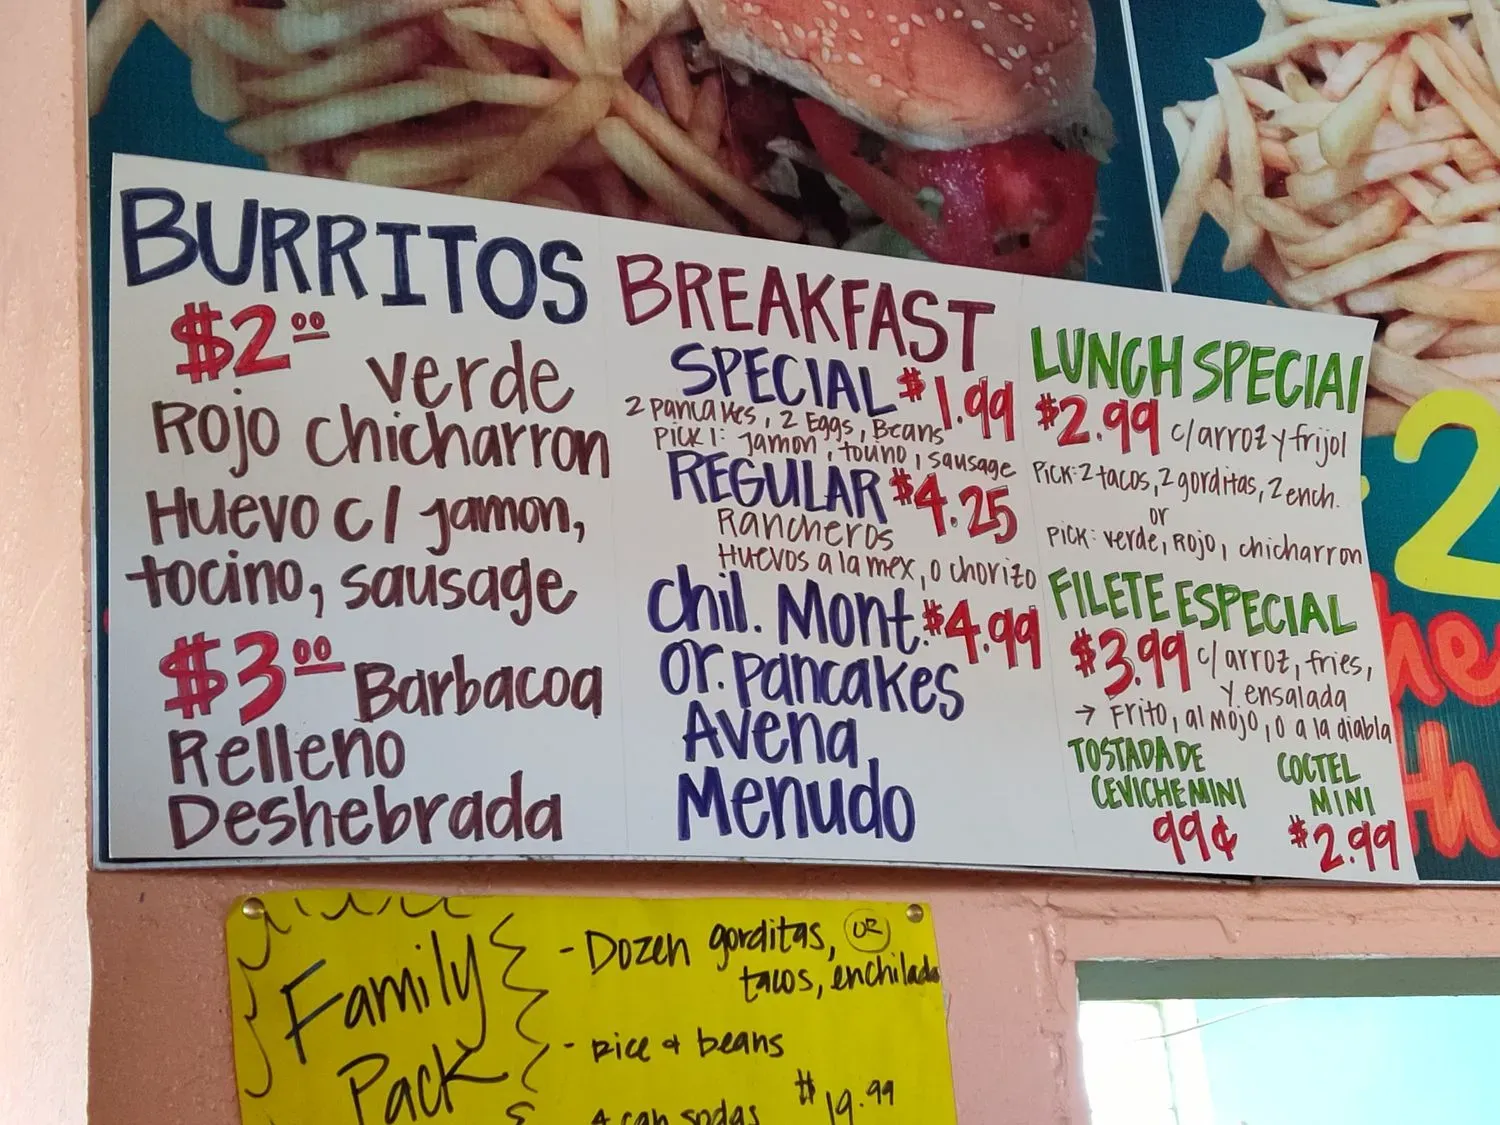 BURRITOS
$2.00 verde
Rojo chicharron
Huevo c/ jamon,
tocino, sausage
$3.00 Barbacoa
Relleno
Deshebrada
BREAKFAST
SPECIAL $1.99
2 pancakes, 2 Eggs, Beans
PICK 1: jamon, touno, sausage
REGULAR $4.25
Rancheros
Huevos a la mex, o chorizo
Chil. Mont. $4.99
or. pancakes
Avena
Menudo
LUNCH SPECIAl
$2.99 c/arroz y frijol
PICK: 2 tacos, 2 gorditas, 2 ench.
or
PICK: verde, ROJO, chicharron
FILETE ESPECIAL
$3.99 c/ arroz, fries,
y ensalada
→ Frito, al mojo, o a la diabla
TOSTADA DE
CEVICHE MINI
99¢
COCTEL
MINI
$2.99
2
he
th
Family
Pack
- Dozen gorditas, OR
tacos, enchilada
- Rice + beans
4 can sodas $19.99